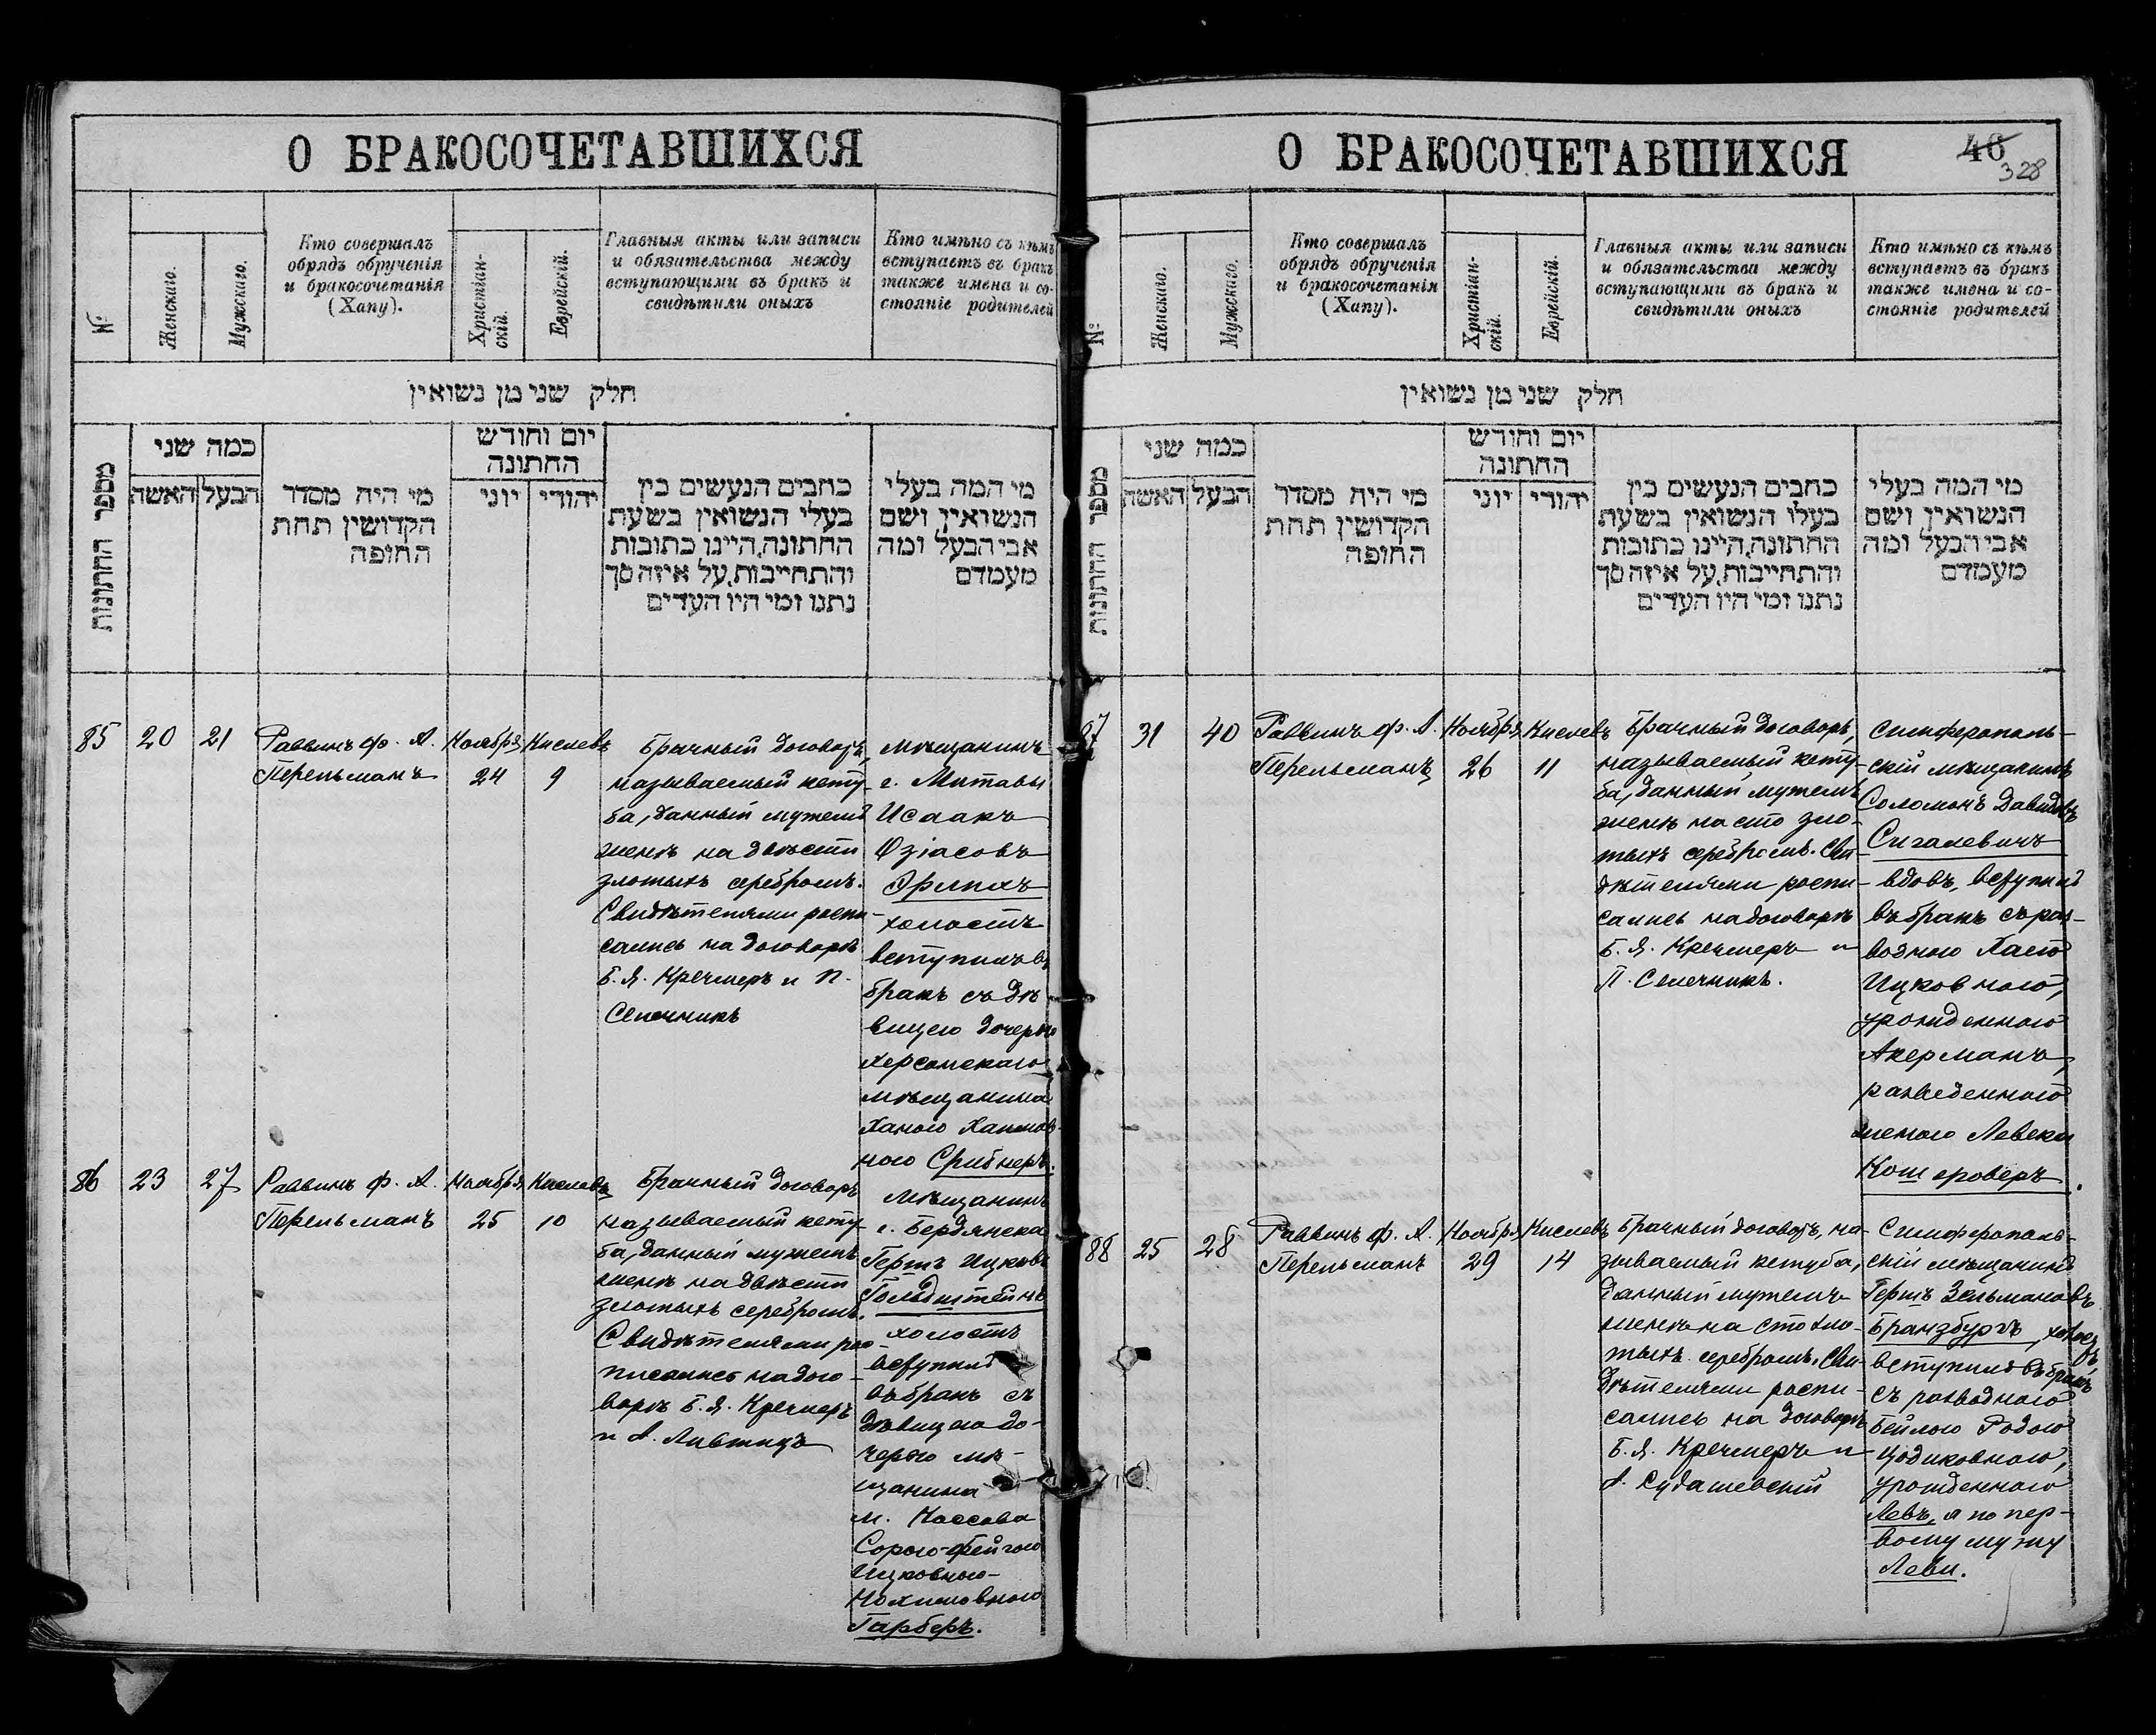 О БРАКОСОЧЕТАВШИХСЯ
№
Женскаго.
Мужскаго.
Кто совершалъ
обрядъ обрученія
и бракосочетанія
(Хапу).
Христіан-
скій.
Еврейскій.
Главныя акты или записи
и обязательства между
вступающими въ бракъ и
свидѣтили оныхъ
Кто имѣно съ кѣмъ
вступаетъ въ бракъ
также имена и со-
стояніе родителей
חלק שני מן נשואין
מספר החתונות
כמה שני
הבעל
האשה
מי היה מסדר
הקדושין תחת
החופה
יום וחודש
החתונה
יהודי
יוני
כתבים הנעשים בין
בעלי הנשואין בשעת
החתונה, היינו כתובות
והתחייבות, על איזה סך
נתנו ומי היו העדים
מי המה בעלי
הנשואין, ושם
אבי הבעל ומה
מעמדם
85
20
21
Раввинъ Ф. А.
Перельманъ
Ноября
24
Кислевъ
9
Брачный договоръ,
называемый кету-
ба, данный мужемъ
женѣ на двѣсти
злотыхъ серебромъ.
Свидѣтелями роспи-
сались на договорѣ
Б. Я. Кречмеръ и П.
Селечникъ
мѣщанинъ
г. Митавы
Исаакъ
Озіасовъ
Эрлихъ
холостъ
вступилъ въ
бракъ съ дѣ-
вицею дочерью
херсонскаго
мѣщанина
Ханою Хаимов-
ною Срибнеръ.
86
23
27
Раввинъ Ф. А.
Перельманъ
Ноября
25
Кислевъ
10
Брачный договоръ
называемый кету-
ба, данный мужемъ
женѣ на двѣсти
злотыхъ серебромъ.
Свидѣтелями рос-
писались на дого-
ворѣ Б. Я. Кречмеръ
и А. Лившицъ
Мѣщанинъ
г. Бердянска
Гершъ Ицковъ
Гольдштейнъ
холостъ
вступилъ
въ бракъ съ
дѣвицею до-
черью мѣ-
щанина
м. Коссова
Сорою-Фейгою
Ицковною-
Нохимовною
Гарберъ.
О БРАКОСОЧЕТАВШИХСЯ
46
328
№
Женскаго.
Мужскаго.
Кто совершалъ
обрядъ обрученія
и бракосочетанія
(Хапу).
Христіан-
скій.
Еврейскій.
Главныя акты или записи
и обязательства между
вступающими въ бракъ и
свидѣтили оныхъ
Кто имѣно съ кѣмъ
вступаетъ въ бракъ
также имена и со-
стояніе родителей
חלק שני מן נשואין
מספר החתונות
כמה שני
הבעל
האשה
מי היה מסדר
הקדושין תחת
החופה
יום וחודש
החתונה
יהודי
יוני
כתבים הנעשים בין
בעלו הנשואין בשעת
החתונה, היינו כתובות
והתחייבות, על איזה סך
נתנו ומי היו העדים
מי המה בעלי
הנשואין, ושם
אבי הבעל ומה
מעמדם
87
31
40
Раввинъ Ф. А.
Перельманъ
Ноября
26
Кислевъ
11
Брачный договоръ,
называемый кету-
ба, данный мужемъ
женѣ на сто зло-
тыхъ серебромъ. Сви-
дѣтелями роспи-
сались на договорѣ
Б. Я. Кречмеръ и
П. Селечникъ.
Симферополь-
скій мѣщанинъ
Соломонъ Давидовъ
Сигалевичъ
вдовъ, вступилъ
въ бракъ съ раз-
водною Хаею
Ицковною,
урожденною
Акерманъ,
разведенною
женою Левека
Кошероверъ.
88
25
28
Раввинъ Ф. А.
Перельманъ
Ноября
29
Кислевъ
14
Брачный договоръ, на-
зываемый кетуба,
данный мужемъ
женѣ на сто зло-
тыхъ серебромъ. Сви-
дѣтелями роспи-
сались на договорѣ
Б. Я. Кречмеръ и
А. Судашевскій
Симферополь-
скій мѣщанинъ
Гершъ Зельмановъ
Бранзбургъ, холостъ,
вступилъ въ бракъ
съ разводною
Бейлою Родою
Цодиковною,
урожденною
Левъ, а по пер-
вому мужу
Леви.